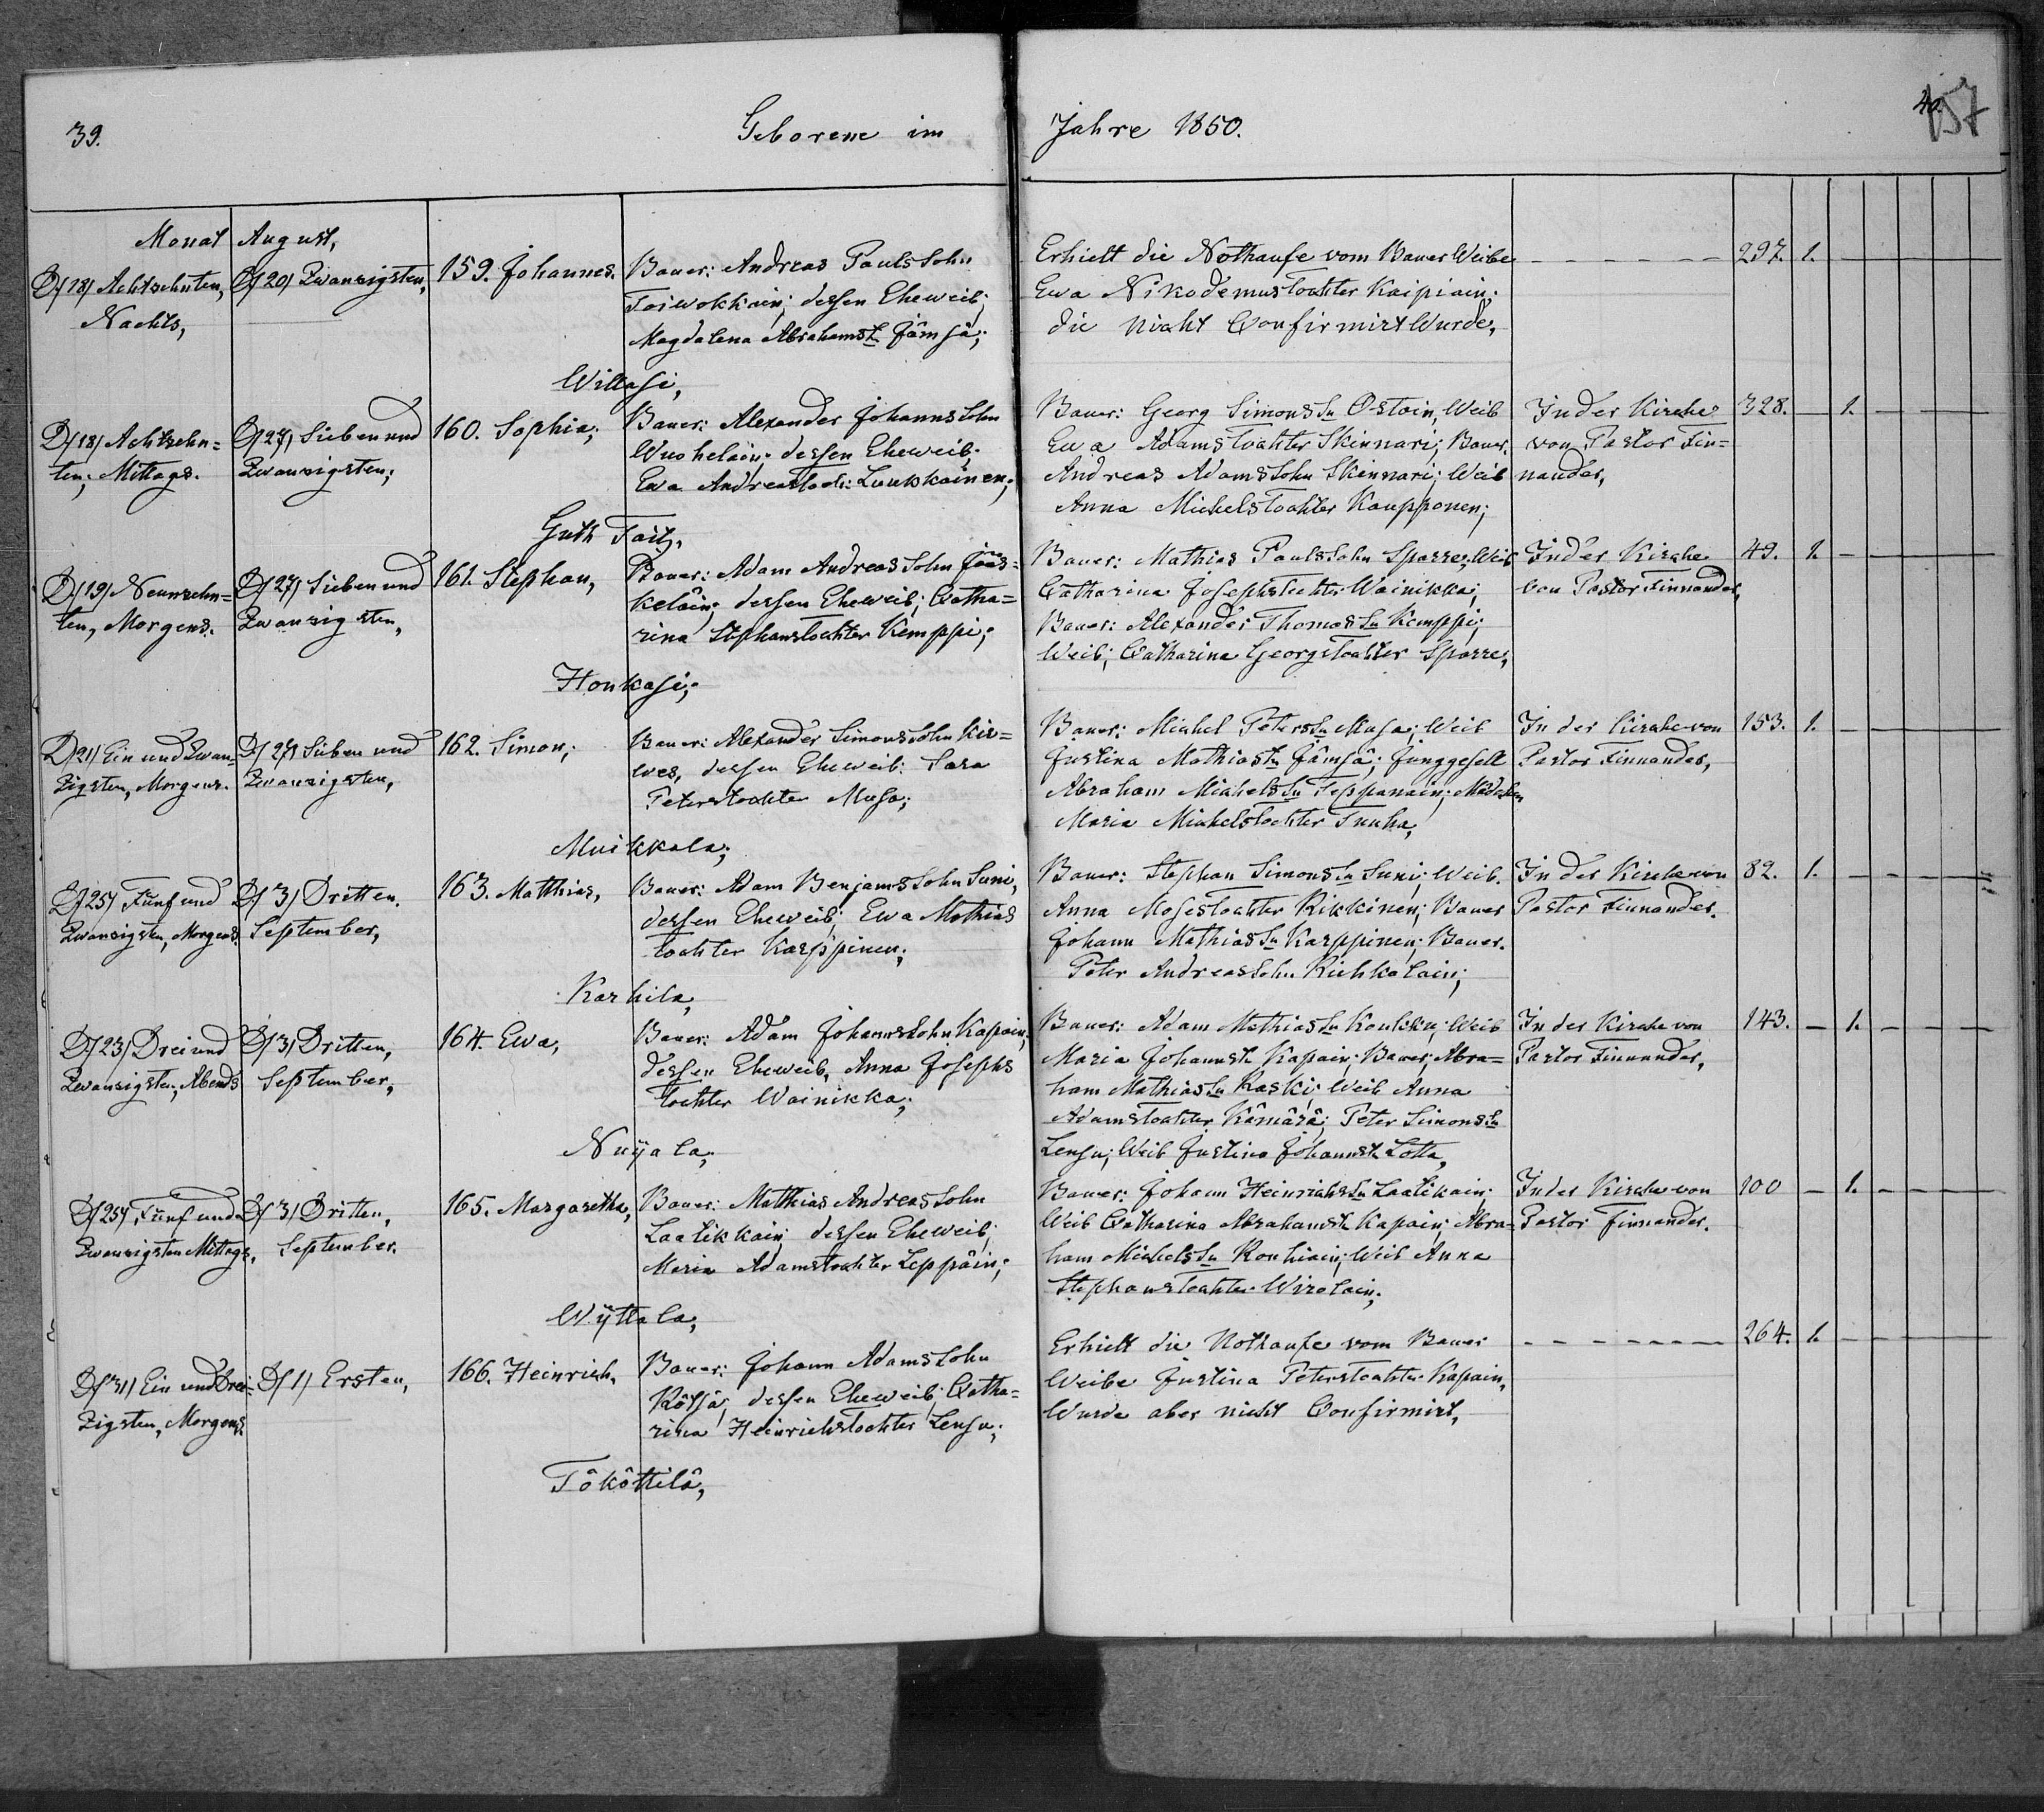 39.
Geborene im
Jahre 1850.
40.
157
Monat August,
D/18/ Achtzehnten,
Nachts,
D/20/ Zwanzigsten,
159. Johannes.
Bauer: Andreas Pauls Sohn
Toiwokkain; dessen Eheweib;
Magdalena Abrahamst. Jämsä;
Erhielt die Nothaufe vom Bauer Weibe
Ewa Nikodemustochter Kaipiain;
die nicht Confirmirt Wurde,
297. 1.
Willasi,
D/18/ Achtzehn=
ten; Mittags.
D/27/ Sieben und
Zwanzigsten;
160. Sophia;
Bauer: Alexander Johanns Sohn
Wuohelain; dessen Eheweib;
Ewa Andreastoch: Loukkainen;
Bauer: Georg Simons Sn Ostoin, Weib
Ewa Adamstochter Skinnari; Bauer.
Andreas Adams Sohn Skennari; Weib
Anna Michelstochter Kaupponen;
In der Kirche
von Pastor Fin=
nander,
328. 1.
Guth Toitz,
D/19/ Neunzehn=
ten, Morgens.
D/27/ Sieben und
Zwanzigsten,
161. Stephan,
Bauer: Adam Andreas Sohn Jääs=
keläin; dessen Eheweib; Catha=
rina Stephanstochter Kemppi;
Bauer: Mathias Pauls Sohn Sparre; Weib
Catharina Josephstochter Wainikka;
Bauer: Alexander Thomas Sn Kemppi;
Weib; Catharina Georgstochter Sparre,
In der Kirche
von Pastor Finnander,
49. 1.
Honkasi;
D/21/ Ein und Zwan=
zigsten, Morgens.
D/27/ Sieben und
Zwanzigsten,
162. Simon;
Bauer: Alexander Simons Sohn Kir=
wes, dessen Eheweib: Sara
Peterstochter Musa;
Bauer: Michel Peters Sn Musa; Weib
Justina Mathiastr Jämsä; Junggesell
Abraham Michels Sn Teppanain; Mädchen
Maria Michelstochter Tuuha,
In der Kirche von
Pastor Finnander,
153. 1.
Muikkala;
D/25/ Fünf und
Zwanzigsten, Morgens.
D/3/ Dritten.
September,
163. Matthias,
Bauer: Adam Benjams Sohn Suni,
dessen Eheweib; Ewa Mathias
tochter Karppinen;
Bauer: Stephan Simons Sn Suni; Weib.
Anna Mosestochter Rikkinen; Bauer
Johann Mathias Sn Karppinen; Bauer.
Peter Andreas Sohn Riehkalain;
In der Kirche von
Pastor Finnander.
82. 1.
Karhila,
D/23/ Drei und
Zwanzigsten, Abends
D/3/ Dritten,
September,
164. Ewa,
Bauer: Adam Johanns Sohn Kapain;
dessen Eheweib, Anna Josephs
tochter Wainikka;
Bauer: Adam Mathias Sn Koukku; Weib
Maria Johannst. Kapain; Bauer; Abra=
ham Mathias Sn Kaski; Weib Anna
Adamstochter Kämärä; Peter Simons Sn
Lensu; Weib Justina Johannst. Lotta,
In der Kirche von
Pastor Finnander,
143. 1.
Nuijala;
D/25/ Fünf und
Zwanzigsten Mittags.
D/3/ Dritten,
September.
165. Margaretha,
Bauer: Matthias Andreas Sohn
Laatikkain dessen Eheweib;
Maria Adamstochter Leppäin;
Bauer: Johann Heinrichs Sn Laatikain;
Weib Catharina Abrahamst. Kapain; Abra=
ham Michels Sn Rouhiain; Weib Anna
Stephanstochter Wirolain;
In der Kirche von
Pastor Finnander.
100 1.
Wÿttala;
D/31/ Ein und Drei=
zigsten, Morgens.
D/1/ Ersten,
166. Heinrich,
Bauer: Johann Adams Sohn
Kössä, dessen Eheweib; Catha=
rina Heinrichstochter Lensu;
Erhielt die Nothaufe vom Bauer
Weibe Justina Peterstochter Kapain,
Wurde aber nicht Confirmirt,
264. 1.
Tököttilä,